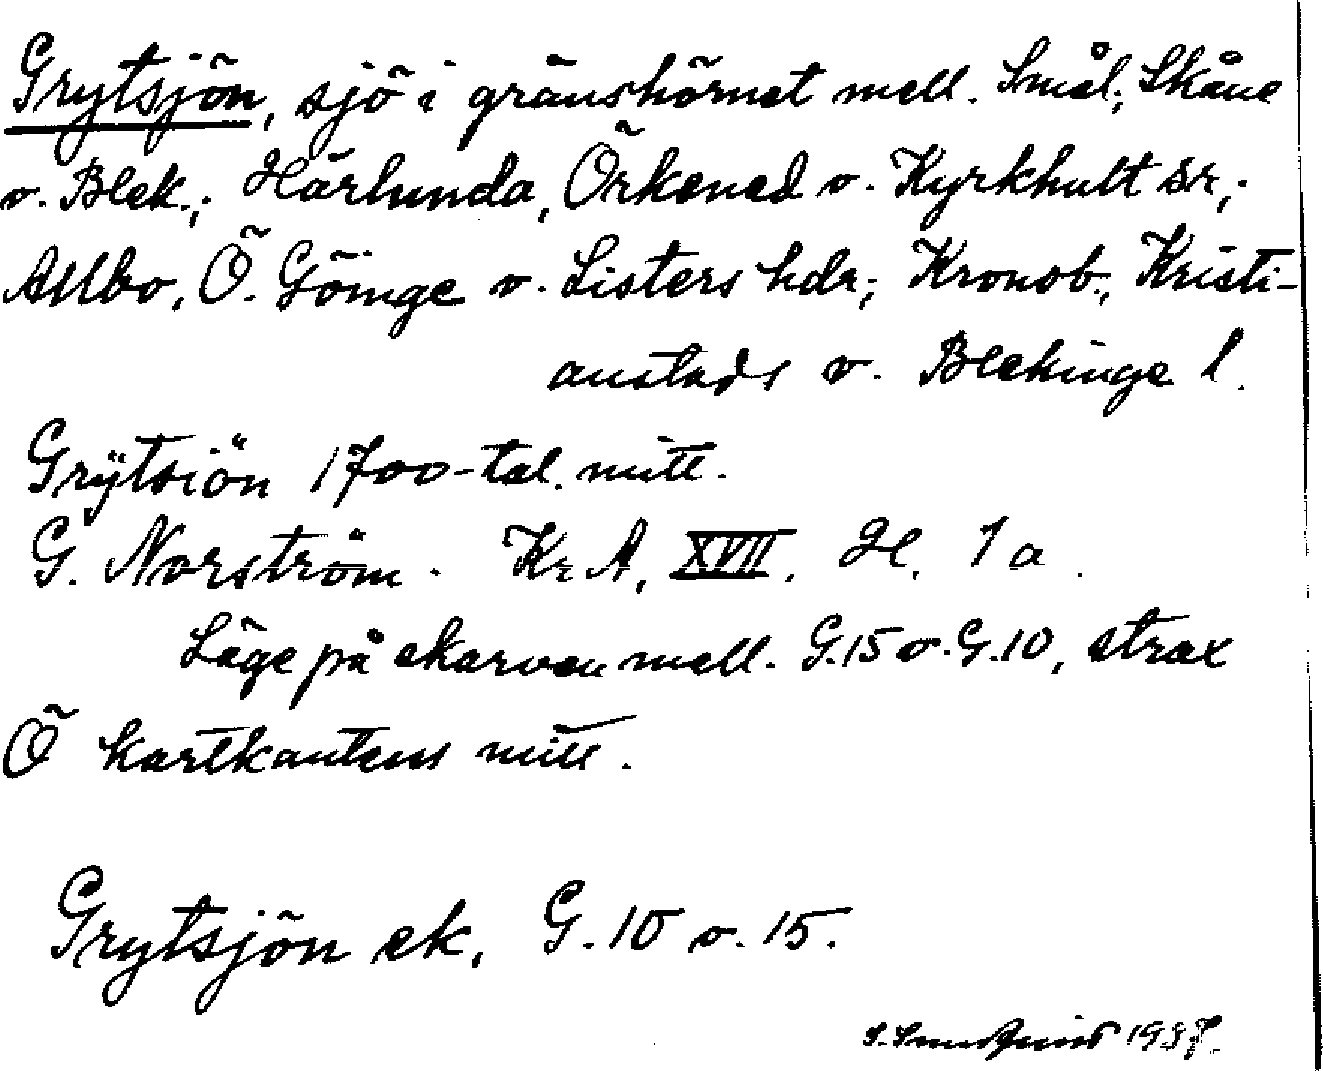 Grytsjön, sjö i gränshörnet mell. Smål., Skåne
o. Blek.; Härlunda, Örkened o. Kyrkhult sr,;
Allbo, Ö. Göinge o. Listers hdr; Kronob., Kristi-
anstads o. Blekinge l.
Grÿtsiön 1700-tal. mitt.
G. Norström. Kr A, XVII. H. 1a.
Läge på ekarven mell. G.15 o. G.10, strax
Ö kartkantens mitt.
Grytsjön ek, G. 10 o. 15.
1937.